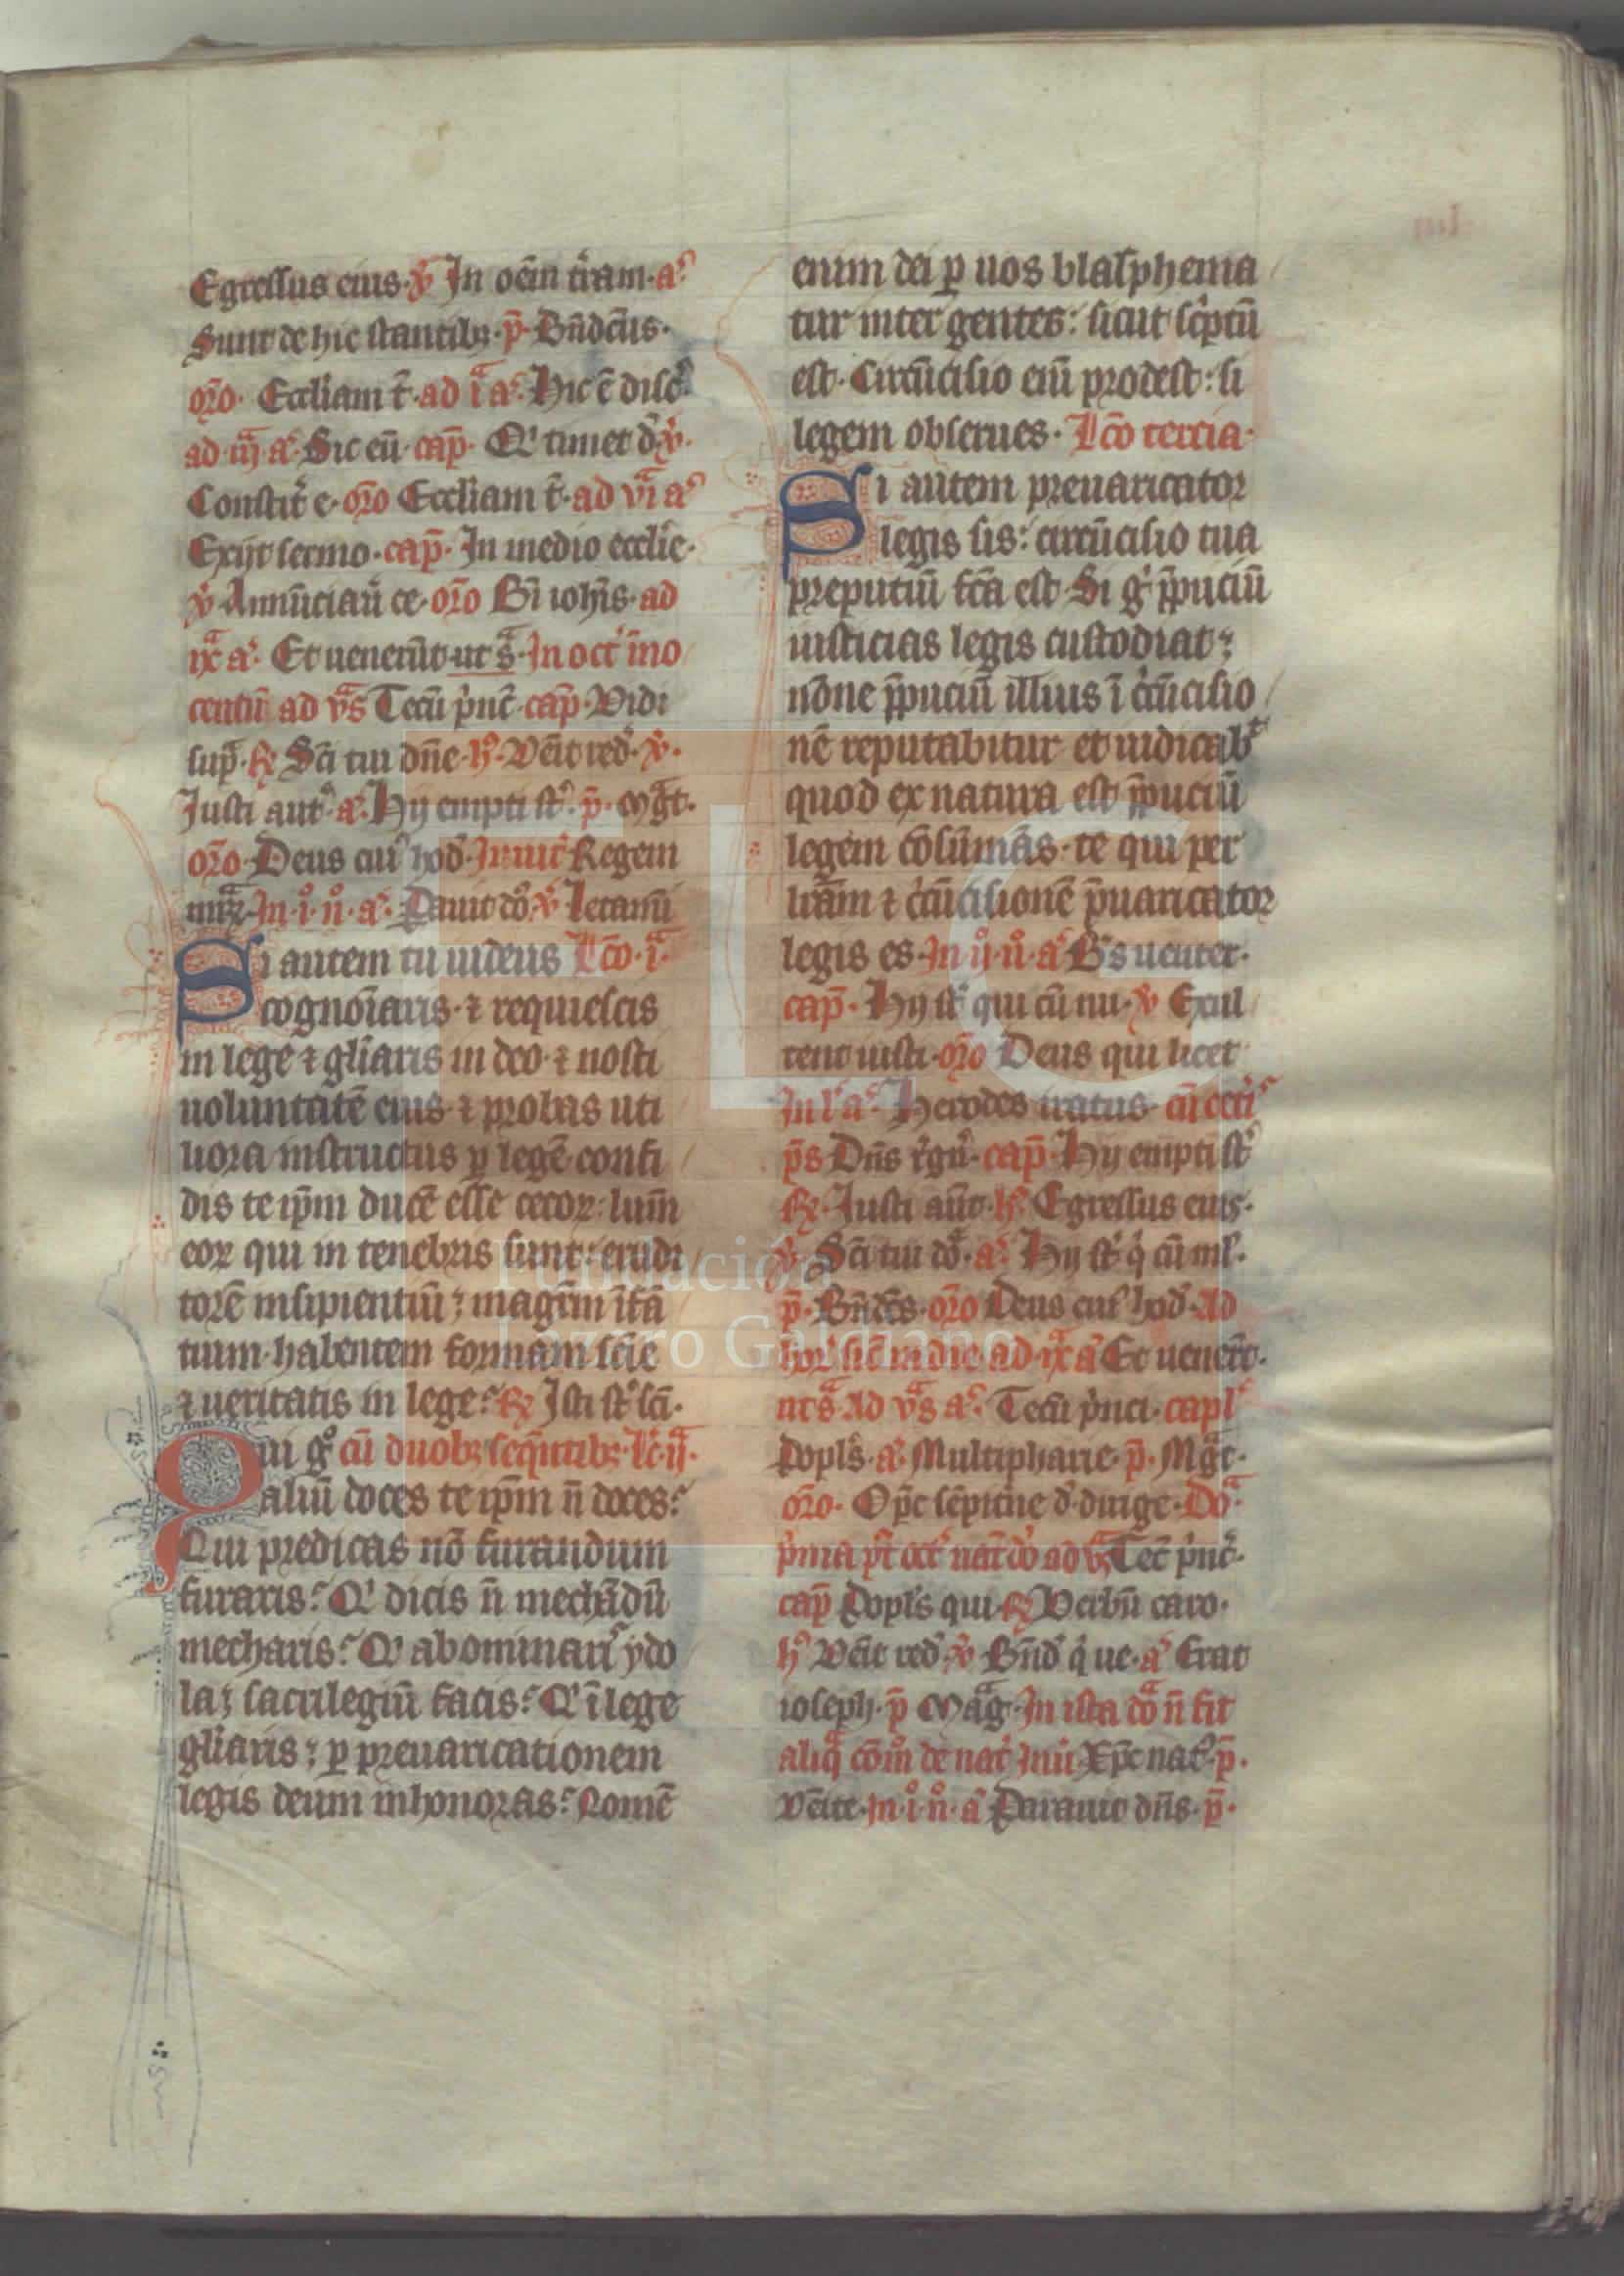 Egressus eius. v̄ In oēm tr̄am. aͬ
Sunt de hic stantibꝫ. p̄. Bn̄dcūs.
oro. Eccliam t̄. ad iᵃ a. Hic ē disc
ad iijᵃ a. Sic eū. cap̄. Qi timet d. v.
Constit e. oro Eccliam t̄. ad viᵃ a
Exijt sermo. cap̄. In medio ecclie.
v̄ Annūciaū ce. oro Bī ioh̄is. ad
ixᵃ a. Et uenerūt ut sᵃ. In oct īno
centū ad vᵃs Tecū pnc̄. cap̄. Vidi
sup. ꝶ Sc̄i tui dn̄e. h. Vēit red. v̄.
Justi aut. a. Hij empti st. p̄. Mgᵃt.
oro. Deus cui hod. Inuit Regem
In i. n. a. v̄ Letamī
Si autem tu iudeus Lc̄o. iᵃ.
cognoīaris. ⁊ requiescis
in lege ⁊ gliaris in deo. ⁊ nosti
uoluntatē eius. ⁊ probas uti
liora instructus ꝑ legē. confi
dis te ip̄m ducē esse cecoꝝ: lum̄
eoꝝ qui in tenebris sunt: erudi
torē insipientiū; maḡrm īfā
tium. habentem formam scīe
⁊ ueritatis in lege. ꝶ Isti st sc̄i.
Qui gͦ cū duobꝫ sequētibꝫ. lc̄. ijᵃ.
aliū doces te ip̄m n̄ doces.
Qui predicas nō furandum
furaris. Qi dicis n̄ mechādū
mecharis. Qi abominaris ydo
la; sacrilegiū facis. Qi ī lege
gliaris; ꝑ preuaricationem
legis deum inhonoras. Nomē
enim dei ꝑ uos blasphema
tur inter gentes: sicut sc̄ptū
est. Circūcisio eiū prodest: si
legem obserues. Lc̄o tercia.
Si autem preuaricator
legis sis: circūcisio tua
preputiū fc̄a est. Si gͥ p̄puciū
iusticias legis custodiat;
nōne p̄puciū illius ī c̄cūcisio
nē reputabitur et iudicabᵗ
quod ex natura est p̄puciū
legem cōsūmās. te qui per
lr̄am ⁊ c̄cūcisionē p̄uaricator
legis es. In ij. n. a. Bs uenter.
cap̄. Hij st qui cū mu. v̄ Exul
tent iusti. oro Deus qui licet
In l a. Herodes iratus. cū ceti
ps Dn̄s rgn. cap̄. Hij empti st
ꝶ. Justi aut. h. Egressus eius.
v̄. Sc̄i tui dō. a. Hij st q cū ml.
p̄. Bn̄dcs. oro Deus cui hod. Ad
hor sic in die ad ixᵃ a Et uenert.
ut sᵃ. Ad vᵃs a. Tecū pnci. capl
Popls. a. Multipharie. p̄. Mgᵃt.
oro. Op̄c sēpitne d. dirige. Dōᵃ
pma pt oct nat dō ad vᵃs Tec̄ pnc̄.
cap̄ Popls qui. ꝶ Verbū caro.
h Vēit red. v̄ Bn̄d q ue. a Erat
ioseph. p̄ Magᵃ. In ista dōᵃ n̄ fit
aliqᵃ cōm de nat Inui. Xp̄c nat. p̄.
Vēite. In i. n. a Paraut dn̄s. p̄.